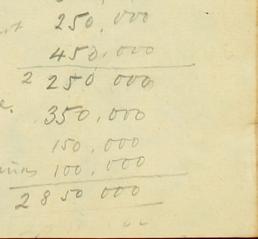 250,000
450,000
2 250 000
350,000
150,000
100,000
2850 000